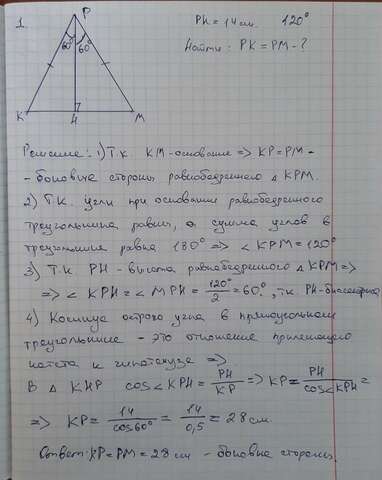 1.
P
PH = 14 см. 120°
60° 60°
Найти: PK = PM - ?
K H M
Решение: 1) Т.к. KM - основание => KP = PM -
- боковые стороны равнобедренного Δ KPM.
2) Т.К. углы при основании равнобедренного
треугольника равны, а сумма углов в
треугольнике равна 180° => < KPM = 120°
3) Т.к PH - высота равнобедренного Δ KPM =>
=> < KPH = < MPH = 120°/2 = 60°, т.к PH - биссектриса
4) Косинус острого угла в прямоугольном
треугольнике - это отношение прилежащего
катета к гипотенузе =>
В Δ KHP cos < KPH = PH/KP => KP = PH/cos < KPH =
=> KP = 14/cos 60° = 14/0,5 = 28 см.
Ответ: KP = PM = 28 см - боковые стороны.